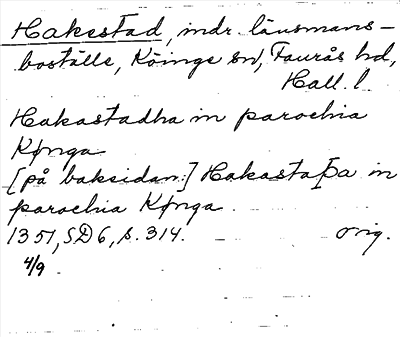 Hakestad, indr. länsmans-
boställe, Köinge sn, Faurås hd,
Hall. l.
Hakastadha in parochia
Kønga
[på baksidan:] Hakastaþa in
parochia Kønga.
1351, SD 6, s. 314. orig.
4/9.